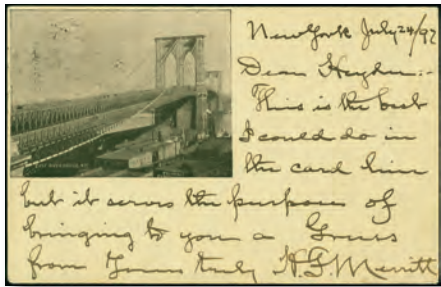 New York July 24/97
Dear Hayden:-
This is the best
I could do in
the card line
but it serves the purpose of
bringing to you a Gruss
from Yours truly H.G. Merritt